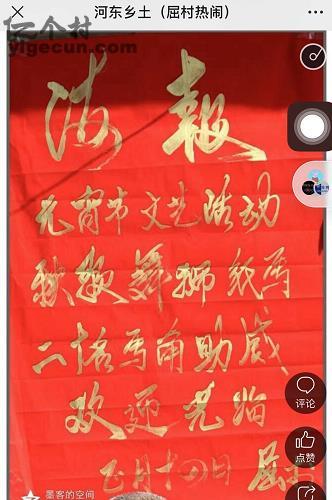 河东乡土（屈村热闹）
亿个村
yigecun.com
海报
元宵节文艺活动
秧歌舞狮
助威
欢迎光临
正月十四日 屈
评论
点赞
墨客的空间